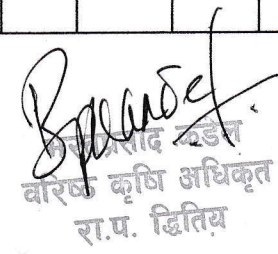 प्रसाद कंडेल
वरिष्ठ कृषि अधिकृत
रा.प. द्वितिय